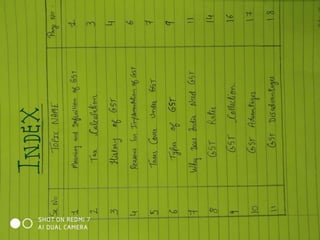 INDEX
Sr. No. TOPIC NAME Page No.
1 Meaning and Definition of GST 1
2 Tax Calculation 3
3 History of GST 4
4 Reasons for Implementation of GST 6
5 Taxes Come Under GST 7
6 Types of GST 9
7 Why Does India Need GST 11
8 GST Rates 14
9 GST Collection 16
10 GST Advantages 17
11 GST Disadvantages 18
SHOT ON REDMI 7
AI DUAL CAMERA